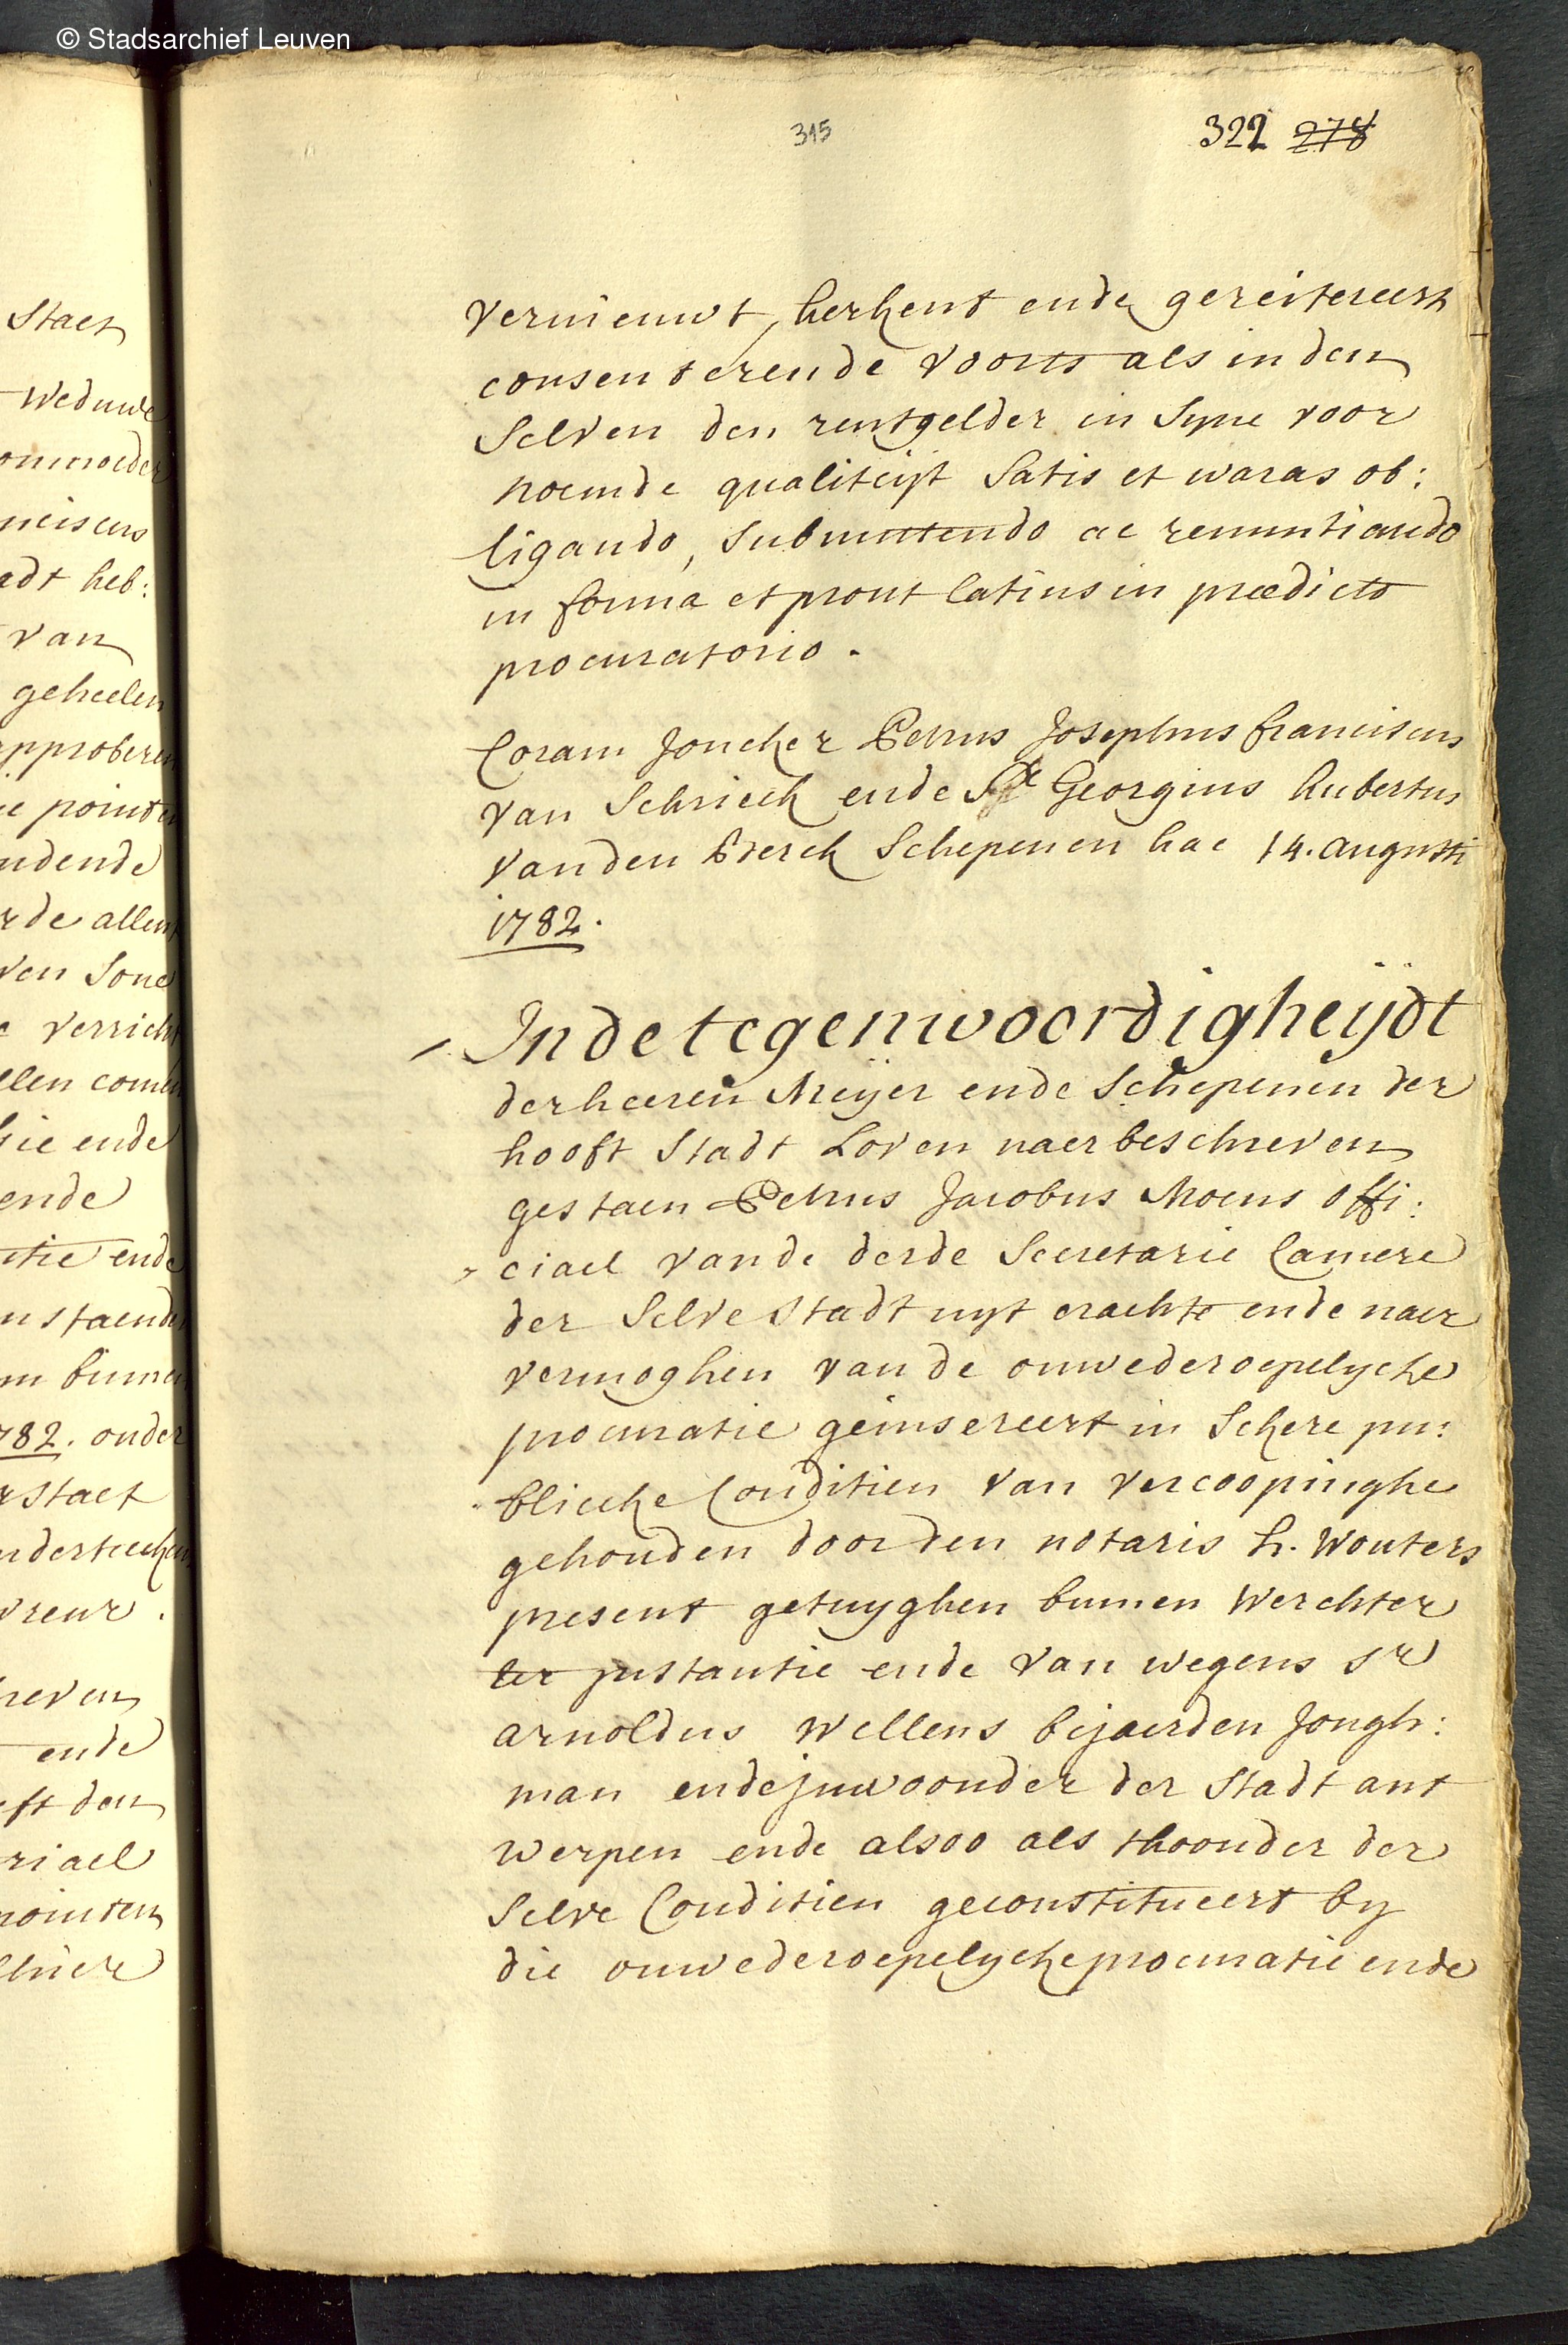 © Stadsarchief Leuven
315
322 278
Staet
Weduwe
heb:
van
geheelen
ende
ende
782. onder
staet
ende
vernieuwt, herkent ende gereitereert
consenterende voorts als in den
selven den rentgelder in syne voor
noemde qualiteijt satis et waras ob:
ligando, submittendo ac renuntiando
in forma et prout latius in prædicto
procuratorio.
Coram Joncker Petrus Josephus franciscus
van Schrieck ende Sr Georgius hubertus
vanden Bierck Schepenen hac 14. augusti
1782.
In de tegenwoordigheijdt
der heeren Meijer ende Schepenen der
hooft Stadt Loven naerbeschreven
gestaen Petrus Jacobus Moens offi:
ciael van de derde Secretarie Camere
der selve stadt uyt crachte ende naer
vermoghen van de onwederoepelycke
procuratie geinsereert in sekere pu:
blicke Conditien van vercoopinghe
gehouden door den notaris h. Wouters
present getuyghen binnen Werchter
ter instantie ende van wegens sr
arnoldus Wellens bejaerden Jongh:
man ende Inwoonder der Stadt ant
werpen ende alsoo als thoonder der
selve Conditien geconstitueert by
die onwederoepelycke procuratie ende